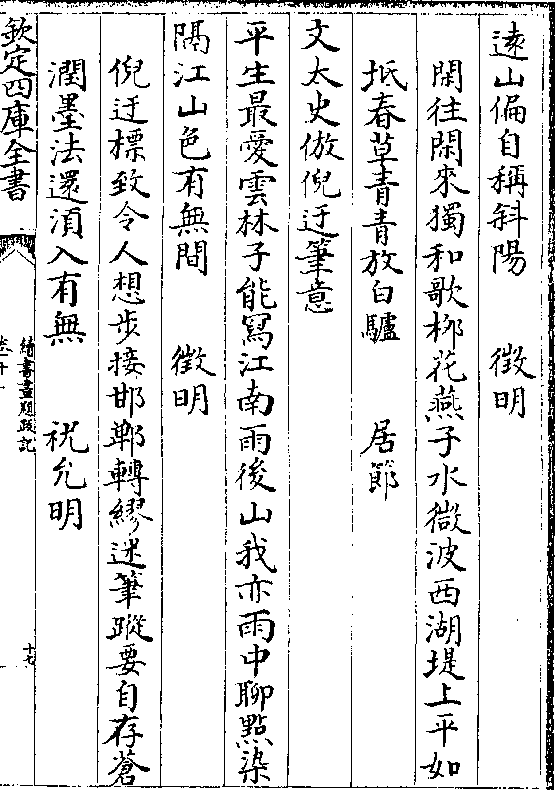 逺山偏自稱斜陽　徴明
閑往閑來獨和歌栁花燕子水㣲波西湖堤上平如
坻春草青青放白驢　居節
文太史倣倪迂筆意
平生最愛雲林子能冩江南雨後山我亦雨中聊點染
隔江山色有無間　徴明
倪迂標致令人想步接邯鄲轉繆迷筆蹤要自存蒼
潤墨法還湏入有無　祝允明
欽定四庫全書
續書畫題跋記
卷十一
十七